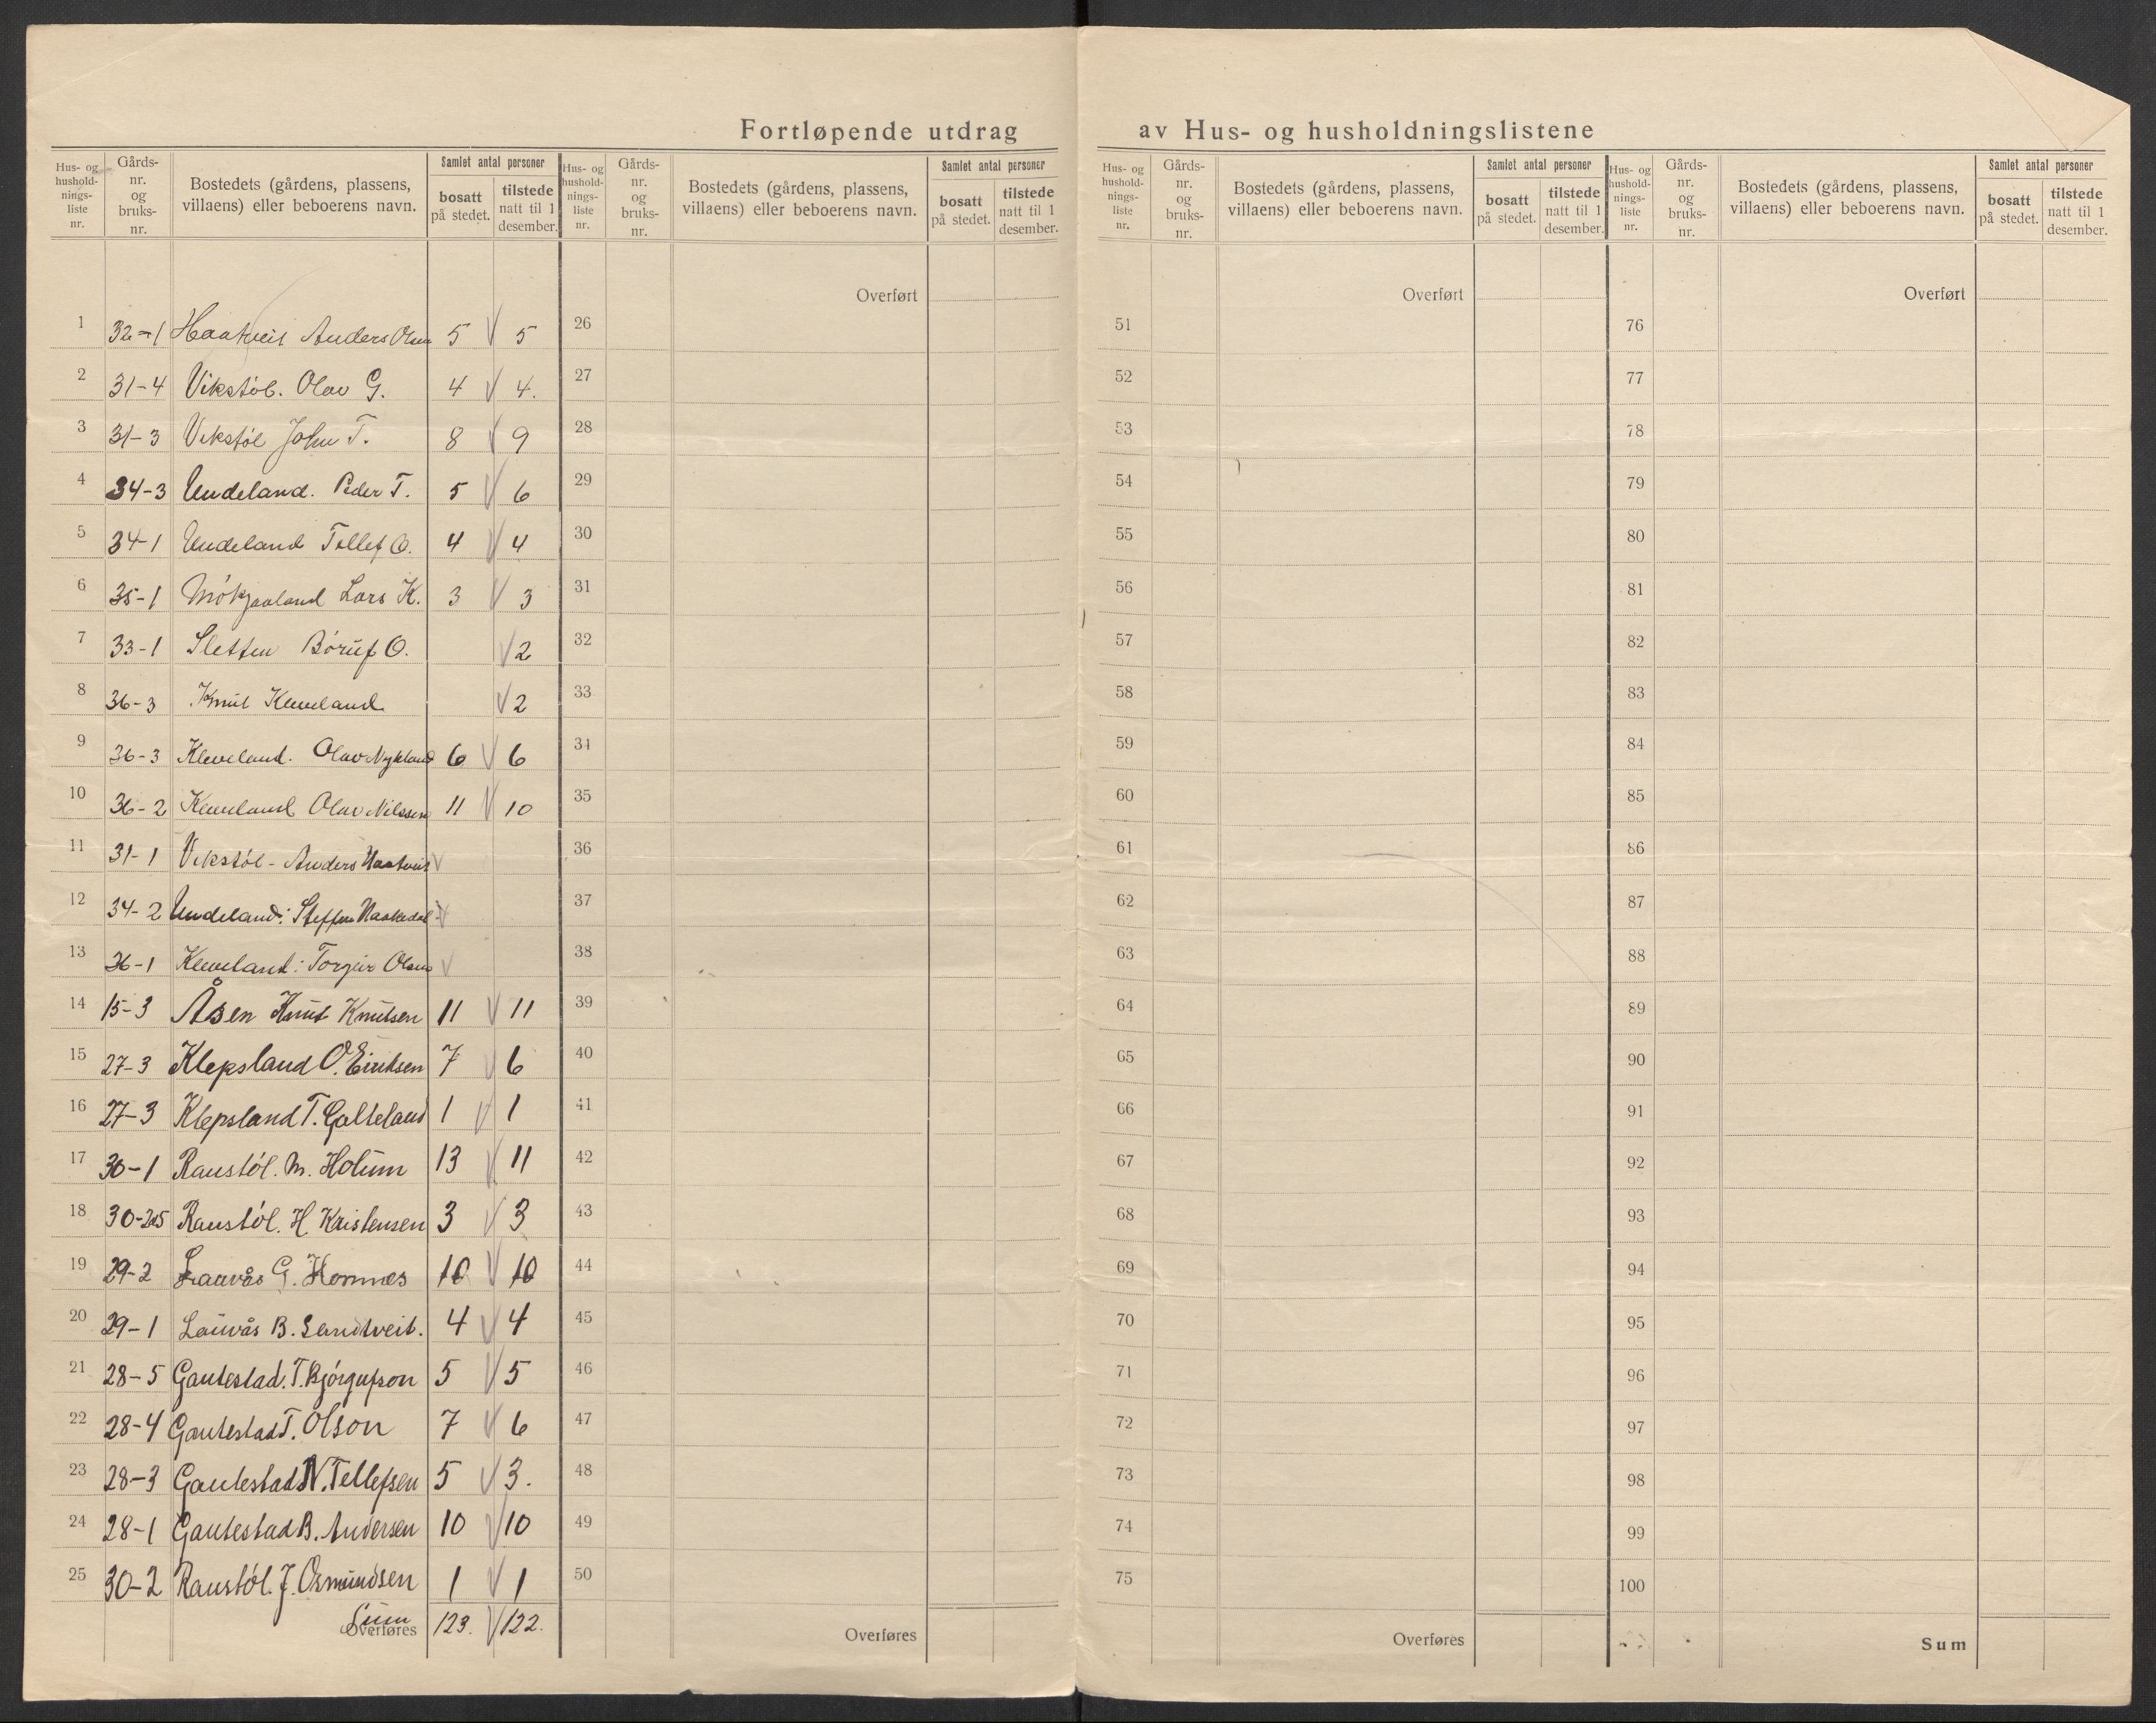 Fortløpende utdrag av Hus- og husholdningslistene
Hus- og hushold-nings-liste nr. Gårds-nr. og bruks-nr. Bostedets (gårdens, plassens, villaens) eller beboerens navn. Samlet antal personer bosatt på stedet. tilstede natt til 1 desember.
Hus- og hushold-nings-liste nr. Gårds-nr. og bruks-nr. Bostedets (gårdens, plassens, villaens) eller beboerens navn. Samlet antal personer bosatt på stedet. tilstede natt til 1 desember.
Hus- og hushold-nings-liste nr. Gårds-nr. og bruks-nr. Bostedets (gårdens, plassens, villaens) eller beboerens navn. Samlet antal personer bosatt på stedet. tilstede natt til 1 desember.
Hus- og hushold-nings-liste nr. Gårds-nr. og bruks-nr. Bostedets (gårdens, plassens, villaens) eller beboerens navn. Samlet antal personer bosatt på stedet. tilstede natt til 1 desember.
Overført Overført Overført
1 32-1 Haatveit Anders Olsen 5 V 5 26 51 76
2 31-4 Vikstøl. Olav G. 4 V 4. 27 52 77
3 31-3 Vikstøl John T. 8 V 9 28 53 78
4 34-3 Uudeland. Peder T. 5 V 6 29 54 79
5 34-1 Uudeland Tellef O. 4 V 4 30 55 80
6 35-1 Mókjaaland Lars K. 3 V 3 31 56 81
7 33-1 Sletten Bórúf O. V 2 32 57 82
8 36-3 Knut Kleveland V 2 33 58 83
9 36-3 Kleveland. Olav Nykland 6 V 6 34 59 84
10 36-2 Kleveland Olav Nilssen 11 V 10 35 60 85
11 31-1 Vikstól - Anders Haatveit V 36 61 86
12 34-2 Uudeland: Steffen Haakedal V 37 62 87
13 36-1 Kleveland: Torgeir Olsen V 38 63 88
14 15-3 Åsen Knut Knutsen 11 V 11 39 64 89
15 27-3 Klepsland O. Eiriksen 7 V 6 40 65 90
16 27-3 Klepsland T. Galteland 1 V 1 41 66 91
17 30-1 Raustól. M. Holum 13 V 11 42 67 92
18 30-2a5 Raustól. H Kristensen 3 V 3 43 68 93
19 29-2 Lauvås G. Homnes 10 V 10 44 69 94
20 29-1 Lauvås B. Sandtveit. 4 V 4 45 70 95
21 28-5 Gautestad. T. Bjórgufson 5 V 5 46 71 96
22 28-4 Gautestad T. Olson 7 V 6 47 72 97
23 28-3 Gautestad N. Tellefsen 5 V 3. 48 73 98
24 28-1 Gautestad B. Andersen 10 V 10 49 74 99
25 30-2 Raustól. J. Osmundsen 1 V 1 50 75 100
Sum
Overføres 123. V 122. Overføres Overføres Sum